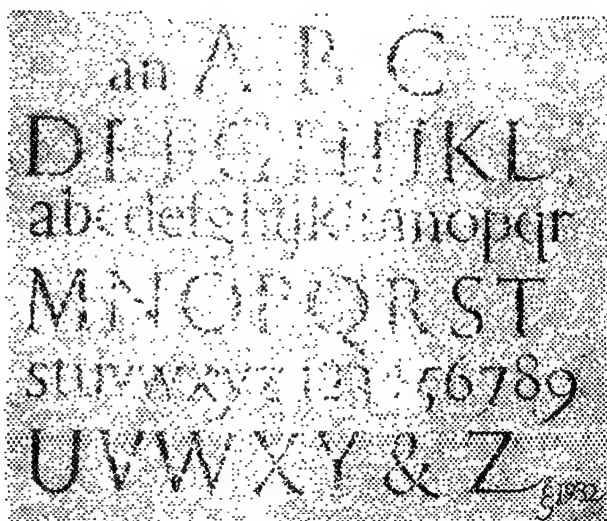 an A B C
D E F G H I J K L
abcdefghijklmnopqr
M N O P Q R S T
stuvwxyz 1234 56789
U V W X Y & Z
EG 1932